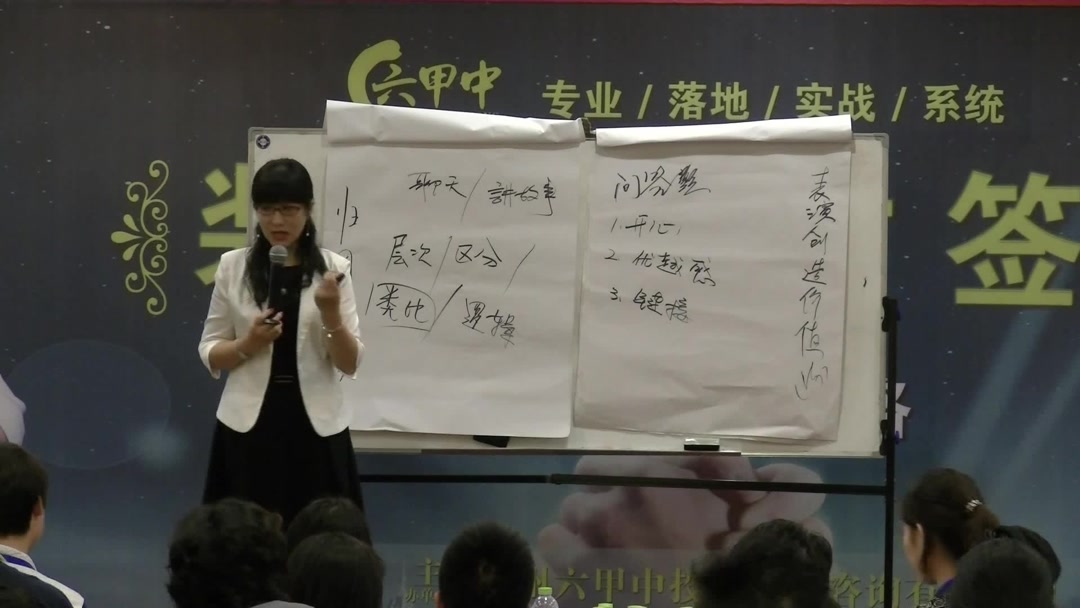 六甲中
专业 / 落地 / 实战 / 系统
签
聊天 / 讲故事
层次 / 区分 /
类比 / 逻辑
问答题
1. 开心
2. 优越感
3. 链接
表演创造价值
六甲中投
咨询有